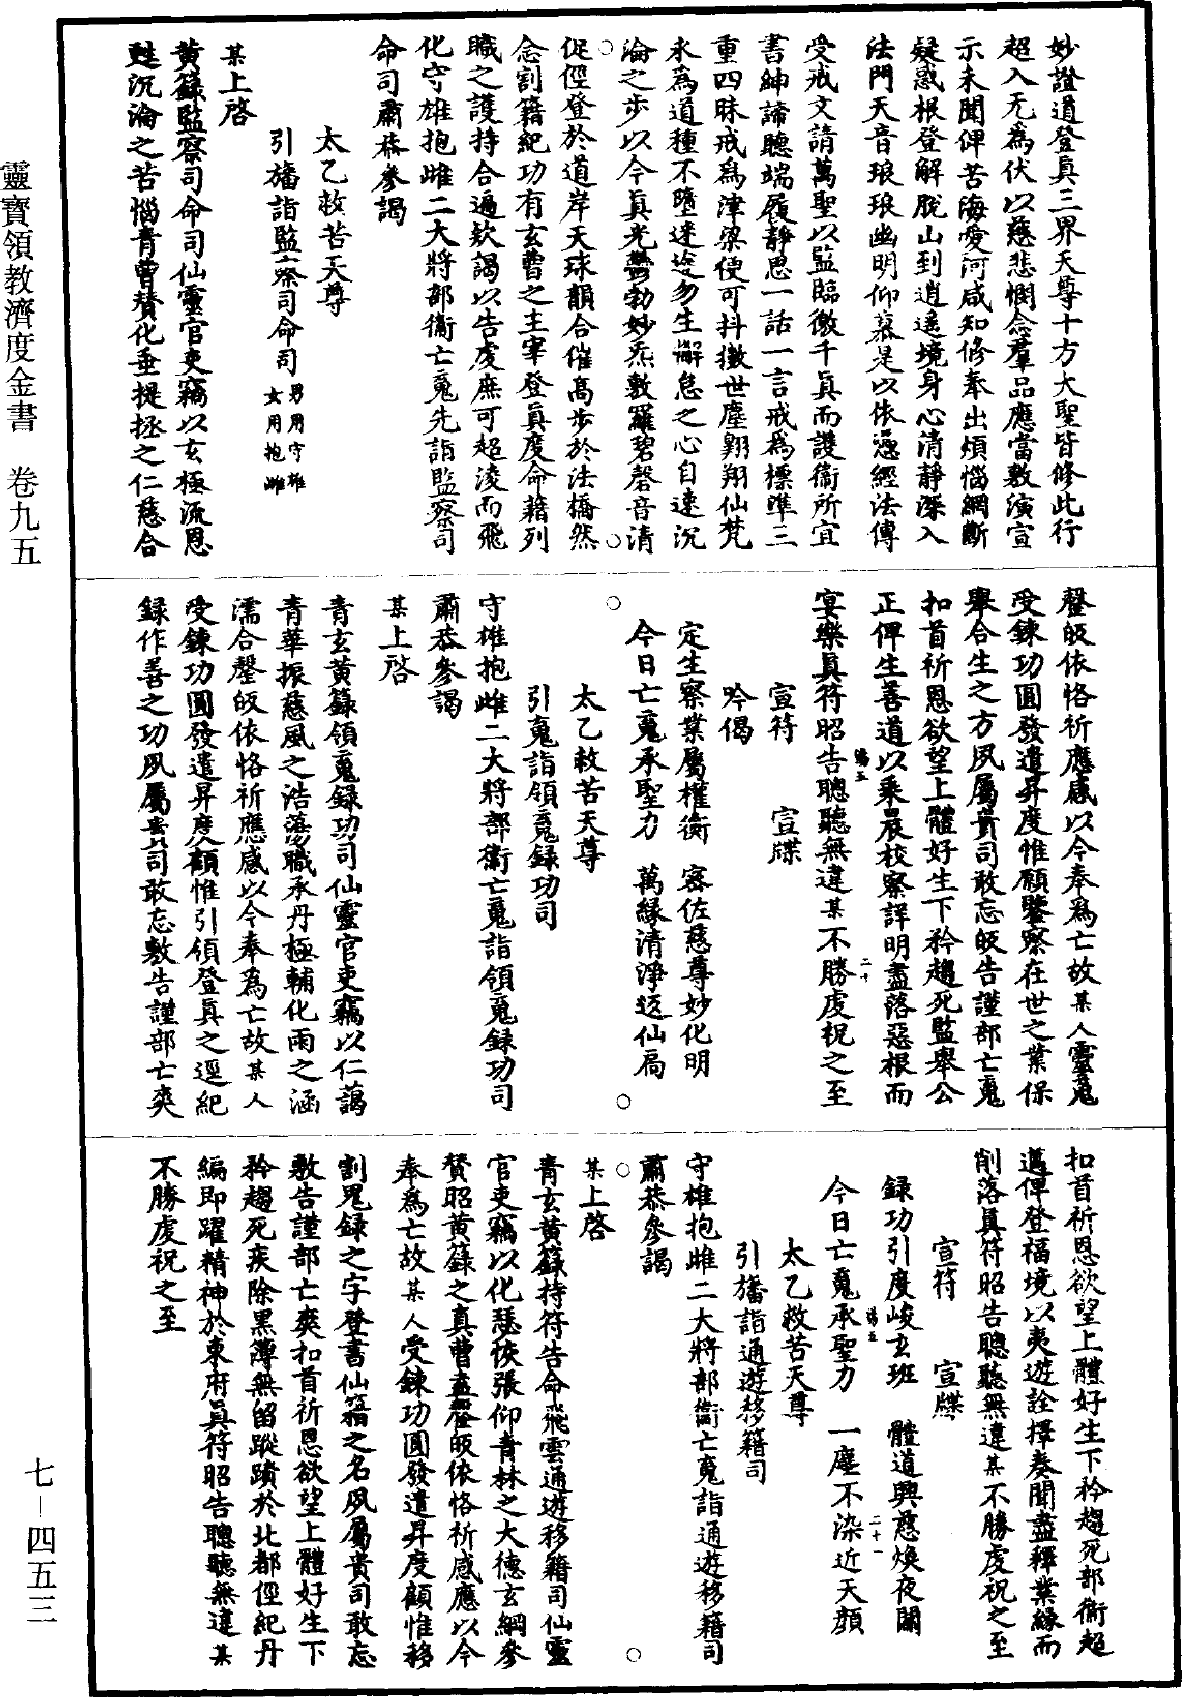 妙證道登眞三界天尊十方大聖皆修此行
超入无為伏以慈悲憫念羣品應當敷演宣
示未聞俾苦海愛河咸知修奉出煩惱網斷
疑惑根登解脫山到逍遙境身心清靜深入
法門天音琅琅幽明仰慕是以依憑經法傳
受戒文請萬聖以監臨徹千眞而護衞所宜
書紳諦聽端履靜思一話一言戒為標準三
重四昧戒為津梁便可抖擻世塵翺翔仙梵
永為道種不墮迷途勿生懈怠之心自速沉
淪之步以今眞光欝勃妙炁敷羅碧磬音清
○ ○
促徑登於道岸天球韻合催高步於法橋然
念割籍紀功有玄曹之主宰登眞度命藉列
職之護持合遍欵謁以告虔庶可超淩而飛
化守雄抱雌二大將部衞亡䰟先詣監察司
命司肅恭參謁
太乙救苦天尊
引旛詣監察司命司 男用守雄 女用抱雌
某上啓
黃籙監察司命司仙靈官吏竊以玄極流恩
甦沉淪之苦惱青曹賛化垂提拯之仁慈合
罄皈依恪祈應感以今奉為亡故某人靈䰟
受鍊功圓發遣昇度惟願鑒察在世之業保
舉合生之方夙屬貴司敢忘皈告謹部亡䰟
扣首祈恩欲望上體好生下矜趨死監舉公
正俾生善道以乘晨校察詳明盡落惡根而
宴樂眞符昭告聰聽無違某不勝虔祝之至
宣符 宣牒
吟偈
定生察業屬權衡 密佐慈尊妙化明
今日亡䰟承聖力 萬緣清淨返仙局
○ ○
太乙救苦天尊
引䰟詣領䰟録功司
守雄抱雌二大將部衞亡䰟詣領䰟録功司
肅恭參謁
某上啓
青玄黃籙領䰟録功司仙靈官吏竊以仁藹
青華振慈風之浩蕩職承丹極輔化雨之涵
濡合罄皈依恪祈應感以今奉為亡故某人
受鍊功圓發遣昇度顧惟引領登真之逕紀
録作善之功夙屬貴司敢忘敷告謹部亡爽
扣首祈恩欲望上體好生下矜趨死部衞超
邁俾登福境以夷遊詮擇奏聞盡釋業緣而
削落眞符昭告聰聽無違某不勝虔祝之至
宣符 宣牒
録功引度峻玄班 體道興慈煥夜關
今日亡䰟承聖力 一塵不染近天顏
太乙救苦天尊
引旛詣通遊移籍司
守雄抱雌二大將部衞亡䰟詣通遊移籍司
肅恭參謁
○ ○
某上啓
青玄黃籙持符告命飛雲通遊移籍司仙靈
官吏竊以化瑟恢張仰青林之大德玄綱參
賛昭黃籙之真曹盍罄皈依恪祈感應以今
奉為亡故某人受鍊功圓發遣昇度顧惟移
割鬼録之字登書仙籍之名夙屬貴司敢忘
敷告謹部亡爽扣首祈恩欲望上體好生下
矜趨死疾除黑簿無留蹤蹟於北都徑紀丹
編即躍精神於東府眞符昭告聰聽無違某
不勝虔祝之至
二十
二十一
靈寶領教濟度金書 卷九五
七－四五三